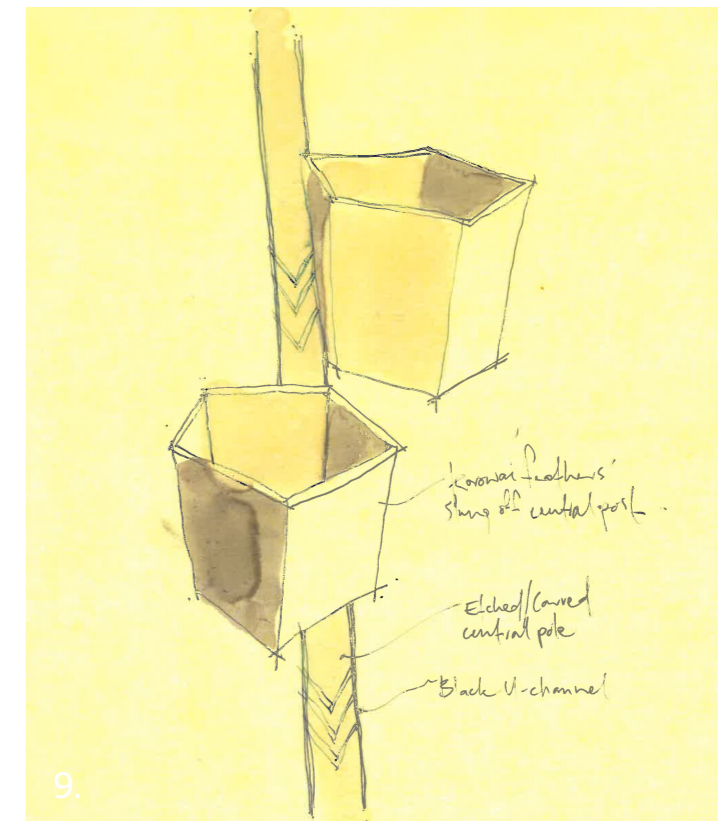 'korowai feathers'
slung off central post.
Etched/Carved
central pole
Black U-channel
9.